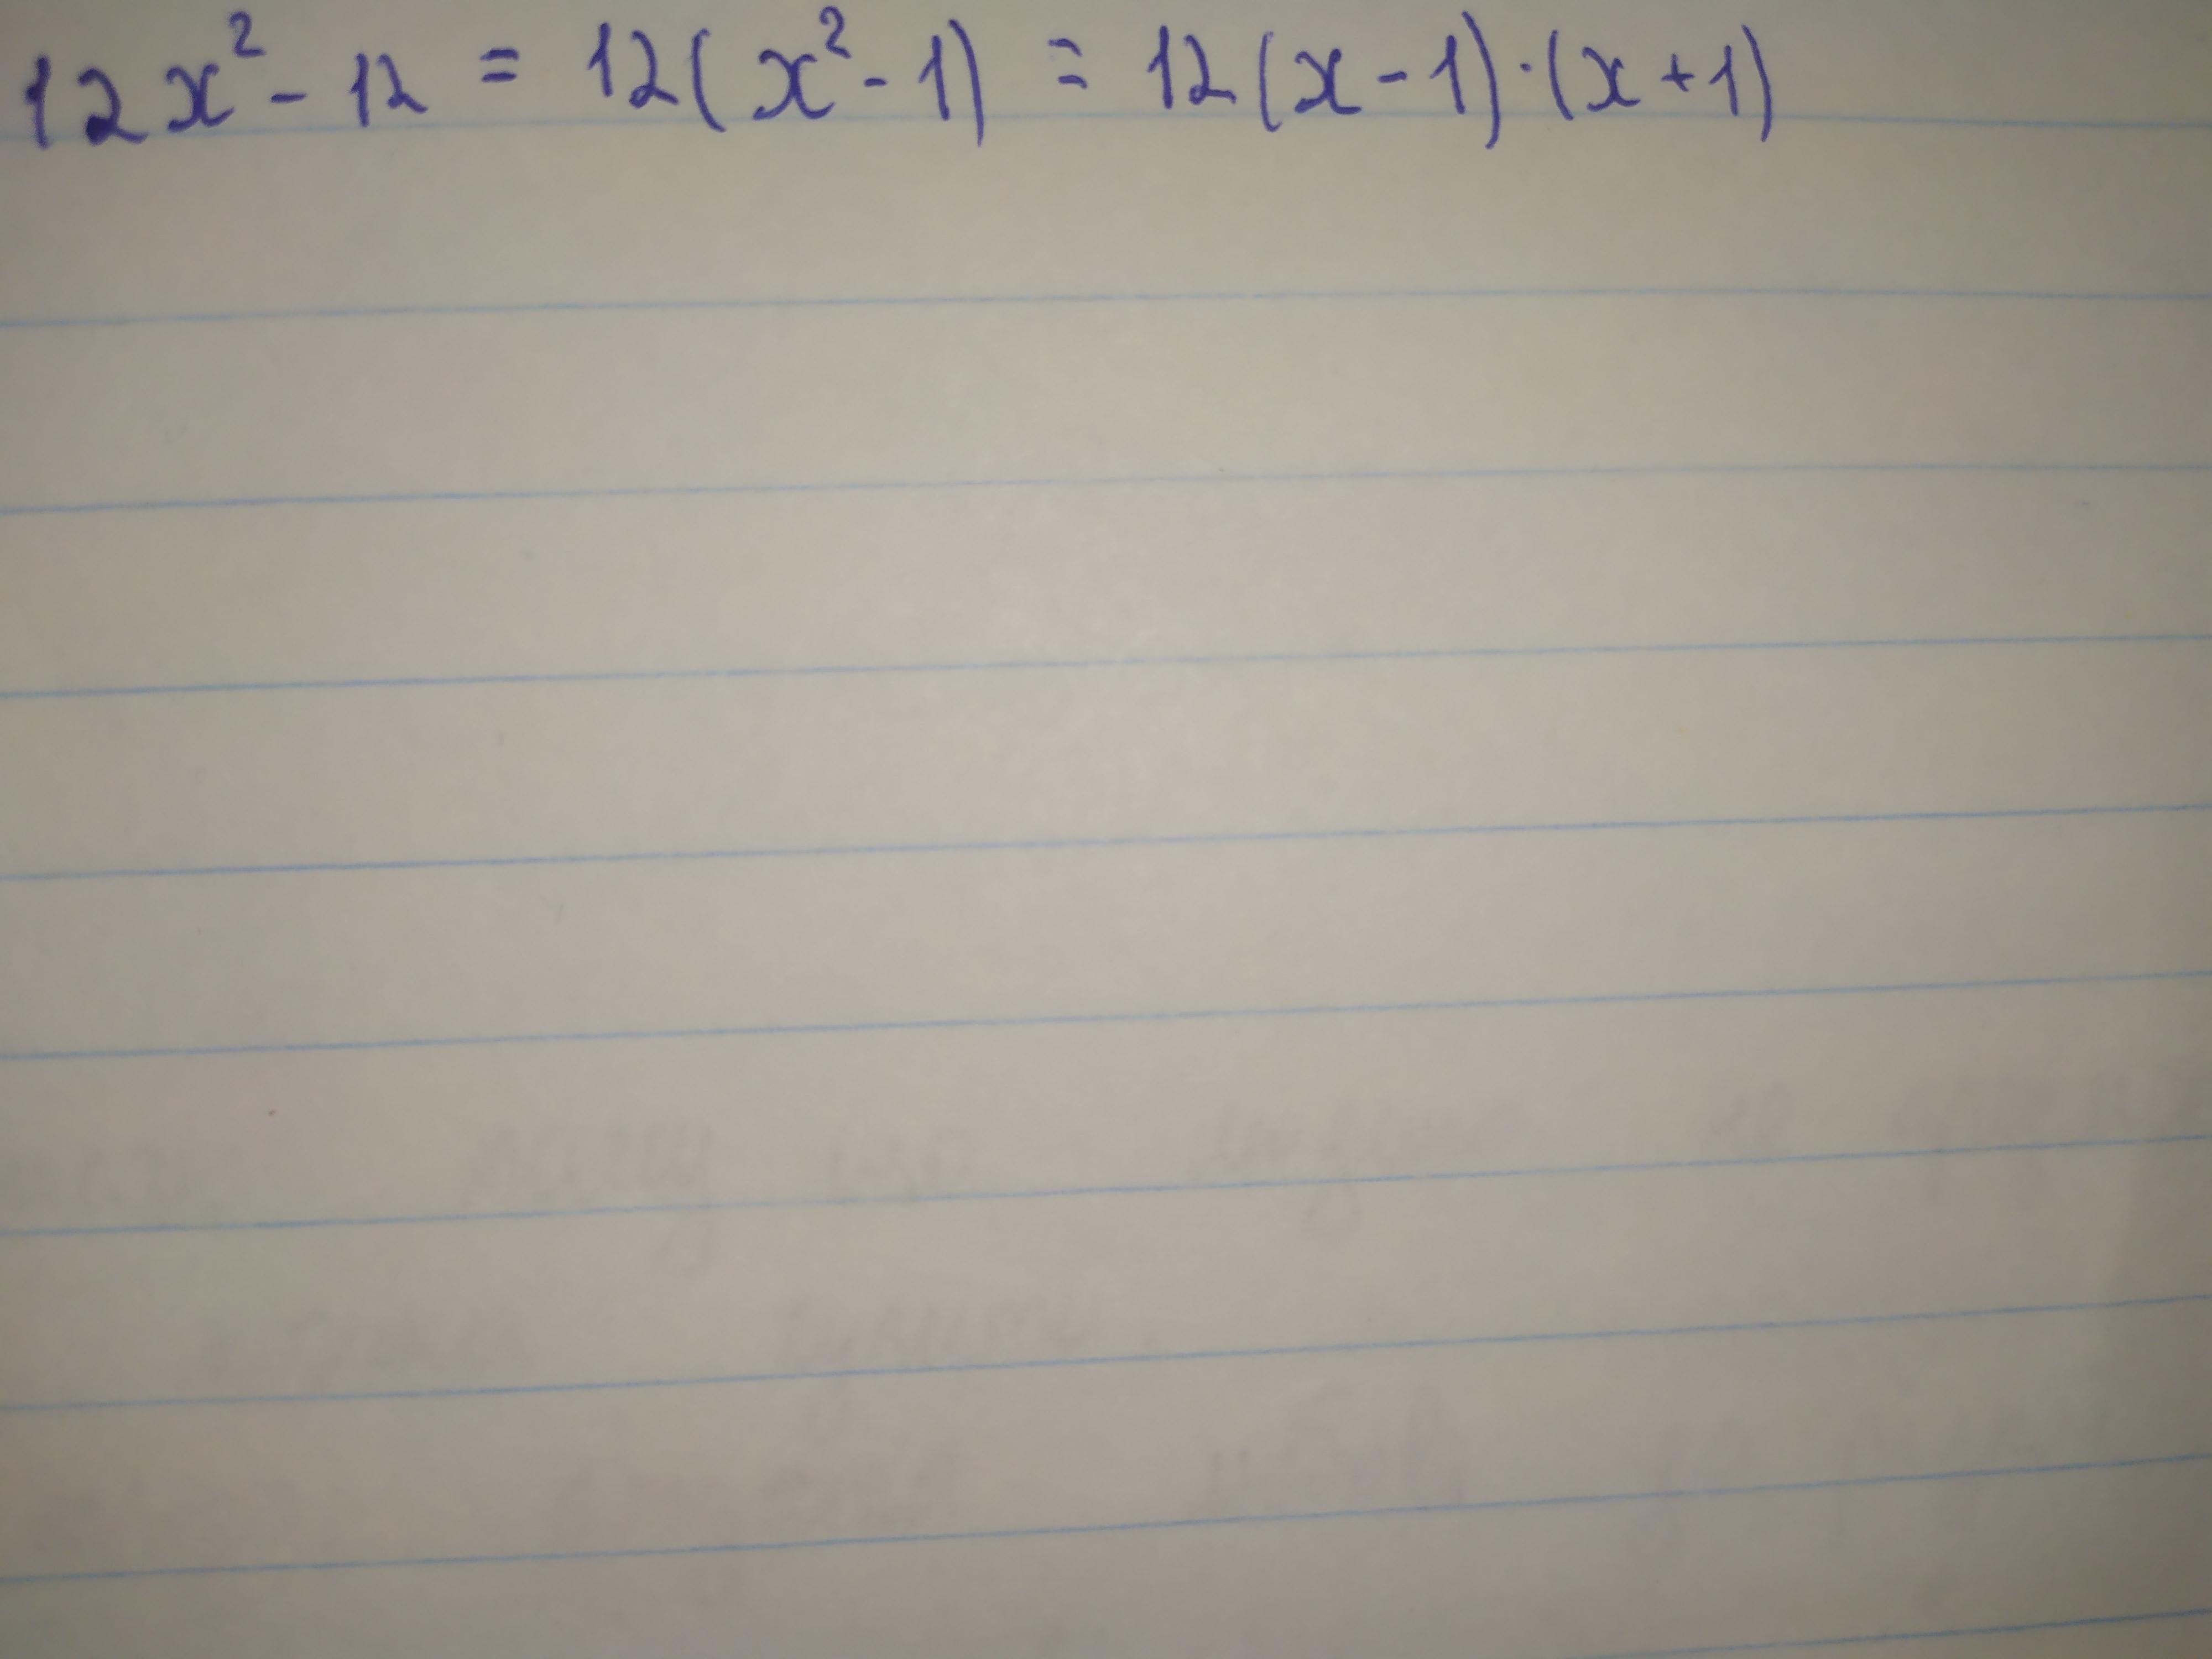 12x² - 12 = 12(x² - 1) = 12(x - 1)·(x + 1)